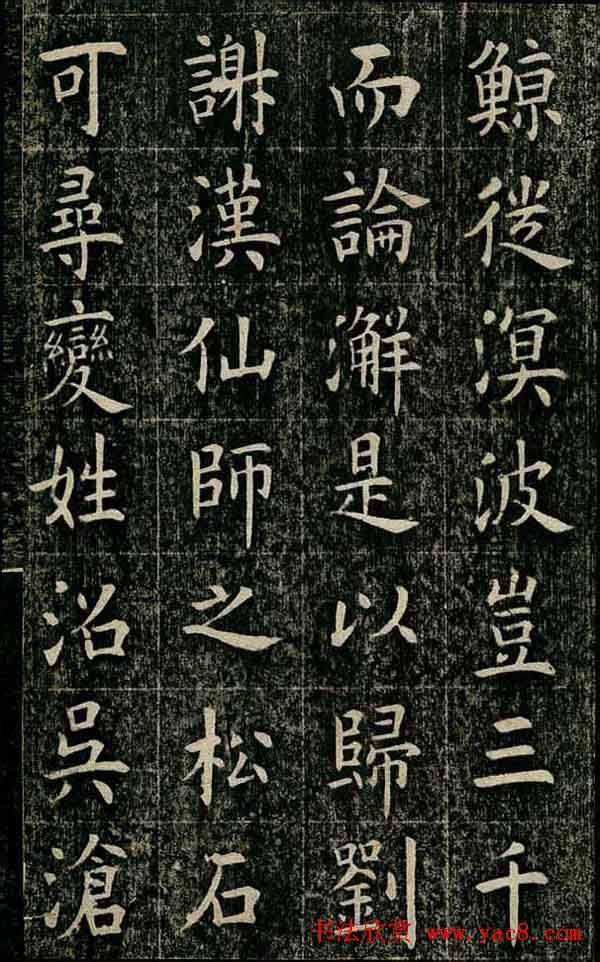 鯨從溟波豈三千
而論澥是以歸劉
謝漢仙師之松石
可尋變姓沿吳滄
书法欣赏 www.yac8.com